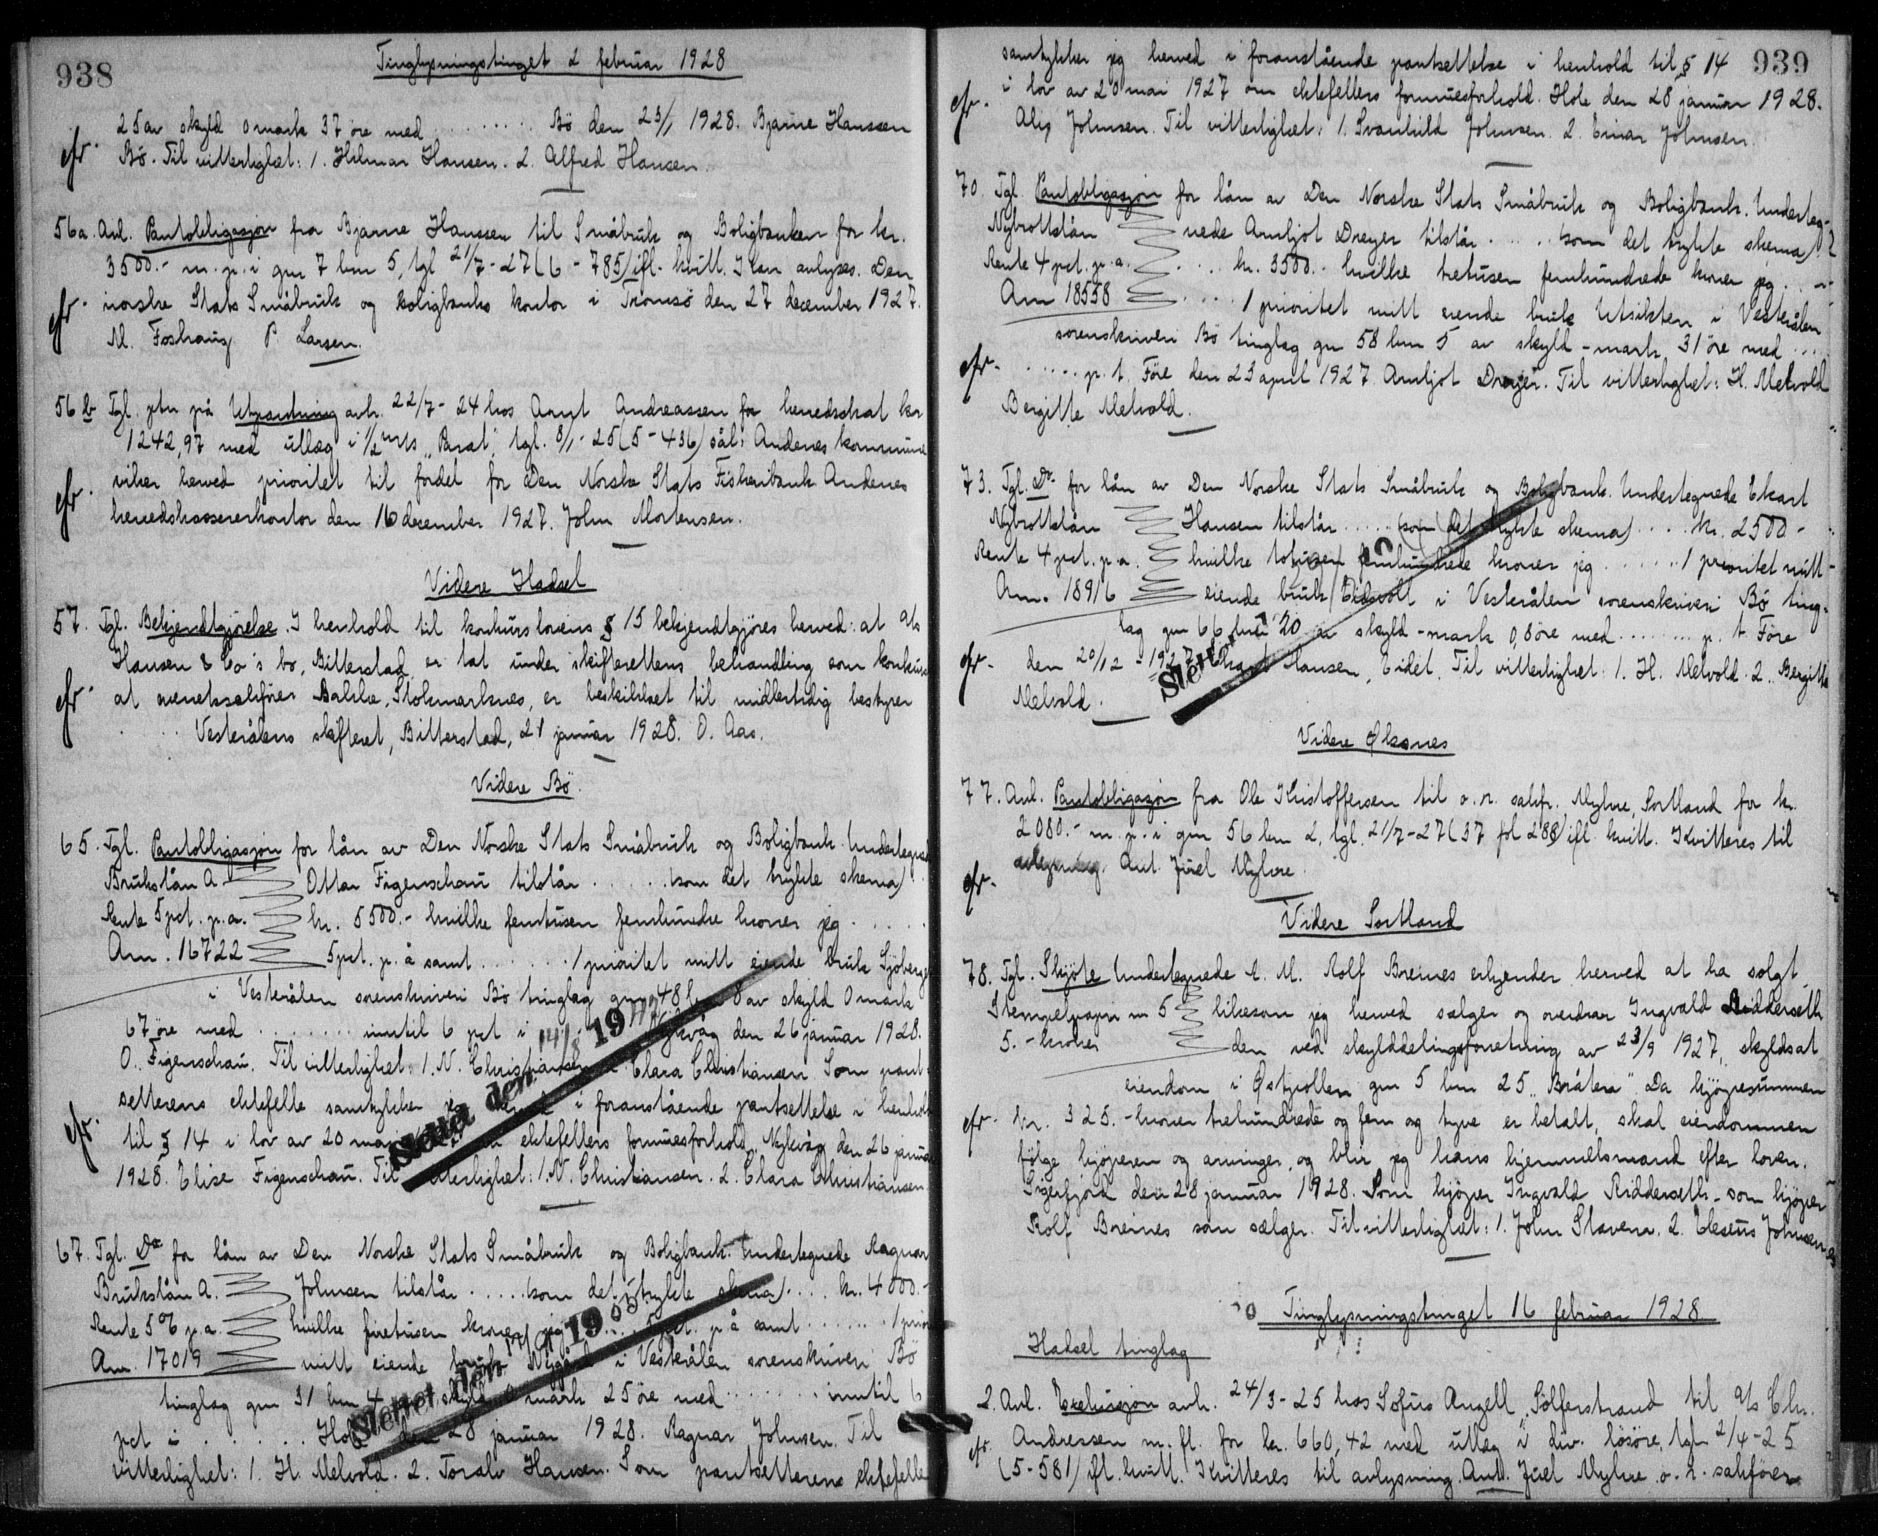 938
Tinglysningstinget 2 februar 1928
25 av skyld 0 mark 37 øre med ........ Bø den 23/1 1928. Bjarne Hanssen
cfr. Bø. Til vitterlighet: 1. Hilmar Hansen. 2. Alfred Hansen.
56a. Avl. Pantobligasjon fra Bjarne Hanssen til Småbruk og Boligbanken for kr.
3500.- m. p. i gnr 7 bnr 5, tgl 21/7-27 (6-785) ifl. kvitt. Kan avlyses. Den
cfr. norske Stats Småbruk og boligbanks kontor i Tromsö den 27 december 1927.
M. Foshaug P. Larsen.
56b Tgl. ptn på Utpantning avh. 22/7-24 hos Arnt Andreassen for herredsskat kr
1242,97 med utlæg i 1/2 m/s "Parat", tgl. 8/1-25 (5-436) sål: Andenes kommune
cfr. viker herved prioritet til fordel for Den Norske Stats Fiskeribank Andenes
herredskassererkontor den 16 december 1927. John Mortensen.
Videre Hadsel
57. Tgl. Bekjendtgjørelse. I henhold til konkurslovens § 15 bekjendtgjöres herved: at A/s
Hansen & Co's bo, Bitterstad er tat under skifterettens behandling som konkurs
cfr. at overretssakfører Bakke, Stokmarknes, er beskikket til midlertidig bestyrer
. . . Vesterålens skifteret, Bitterstad, 21 januar 1928. O. Aas.
Videre Bö.
65. Tgl. Pantobligasjon for lån av Den Norske Stats Småbruk og Boligbank. Undertegnede
Brukslån A. Ottar Figenschau tilstår ...... (som det trykte skema)
Rente 5 pct. p. a. kr. 5500.- hvilke femtusen femhundre kroner jeg .....
Anm. 16722 5 pct. p. å samt ....... 1 prioritet mitt eiende bruk Sjöberget
i Vesterålen sorenskriveri Bö tinglag gnr 48 bnr 8 av skyld 0 mark
67 øre med ........ inntil 6 pct i ... Nykvåg den 26 januar 1928.
O. Figenschau. Til vitterlighet: 1. N. Christiansen 2. Clara Christiansen Som pant-
setterens ektefelle samtykker jeg herved i foranstående pantsettelse i henhold
cfr. til § 14 i lov av 20 mai 1927 om ektefellers formuesforhold. Nykvåg den 26 januar
1928. Elise Figenschau. Til vitterlighet: 1. N. Christiansen. 2. Clara Christiansen.
Slettet den 14/8 19
67. Tgl. Do for lån av Den Norske Stats Småbruk og Boligbank. Undertegnede Ragnar
Brukslån A. Johnsen tilstår ..... (som det trykte skema) .... kr. 4000.-
Rente 5% p. a. hvilke firetusen kroner jeg .... 5 pct. p å samt ...... 1 prior
Anm. 17019 mitt eiende bruk Nygård i Vesterålen sorenskriveri Bö
tinglag gnr 31 bnr 4 av skyld 0 mark 25 öre med ....... inntil 6
pct i ....... Hole den 28 januar 1928. Ragnar Johnsen. Til
vitterlighet: 1. H. Melvold. 2. Toralv Hansen. Som pantsetterens ektefelle
Slettet den 19
939
samtykker jeg herved i foranstående pantsettelse i henhold til § 14
cfr. i lov av 20 mai 1927 om ektefellers formuesforhold. Hole den 28 januar 1928.
Alis Johnsen. Til vitterlighet: 1. Svanhild Johnsen. 2. Einar Johnsen.
70. Tgl. Pantobligasjon for lån av Den Norske Stats Småbruk og Boligbank. Underteg-
Nybrottslån nede Arnljot Dreyer tilstår ..... (som det trykte skema)
Rente 4 pct. p. a. .... kr. 3500.- hvilke tretusen femhundrede kroner jeg ...
Anm 18558 .... 1 prioritet mitt eiende bruk Utsikten i Vesterålen
sorenskriveri Bö tinglag gnr 58 bnr 5 av skyld - mark 31 öre med ....
cfr. ..... p. t. Före den 23 april 1927. Arnljot Dreyer. Til vitterlighet: H. Melvold
Bergitte Melvold.
73. Tgl. Do for lån av Den Norske Stats Småbruk og Boligbank. Undertegnede Ekart
Nybrottslån Hansen tilstår ..... (som det trykte skema) .... kr. 2500 -
Rente 4 pct. p. a. hvilke totusen femhundrede kroner jeg ...... 1 prioritet mitt
Anm. 18916 eiende bruk Eidsvoll i Vesterålen sorenskriveri Bö ting-
lag gnr 66 bnr 20 av skyld - mark 0,8 öre med ....... p. t. Före
cfr. den 20/12-1927. Ekart Hansen, Eidet. Til vitterlighet: 1. H. Melvold 2. Bergitte
Melvold.
Slettet
Videre Øksnes
77. Avl. Pantobligasjon fra Ole Kristoffersen til o. r. sakfr. Mykre, Sortland for kr.
2080.- m. p. i gnr 56 bnr 2, tgl. 21/7-27 (37 fol 288) ifl kvitt. Kvitteres til
cfr. avlysning. Ant. Juel Mykre.
Videre Sortland
78. Tgl. Skjöte Undertegnede A. M. Rolf Breines erkjender herved at ha solgt,
Stempelpapir m 5 likesom jeg herved sælger og overdrar Ingvald Ridderseth
5. - kroner den ved skylddelingsforretning av 23/9 1927, skyldsat
eiendom i Østpollen gnr 5 bnr 25 "Bråtera" Da kjöpesummen
cfr. kr. 325.- kroner trehundrede og fem og tyve er betalt, skal eiendommen
fölge kjöperen og arvinger, og blir jeg hans hjemmelsmand efter loven.
Sigerfjord den 28 januar 1928. Som kjöper Ingvald Ridderseth - som kjöper
Rolf Breines som sælger. Til vitterlighet: 1. John Stavena. 2. Eleseus Johnsen
Tinglysningstinget 16 februar 1928
Hadsel tinglag
2. Avl. Exekusjon avh. 24/3-25 hos Sofus Angell, Sölferstrand til A/s Chr.
cfr. Andressen m. fl. for kr. 660,42 med utlæg i div. lösöre, tgl 2/4-25
(5-581) ifl. kvitt. Kvitteres til avlysning. Ant. Juel Mykre o. r. sakförer